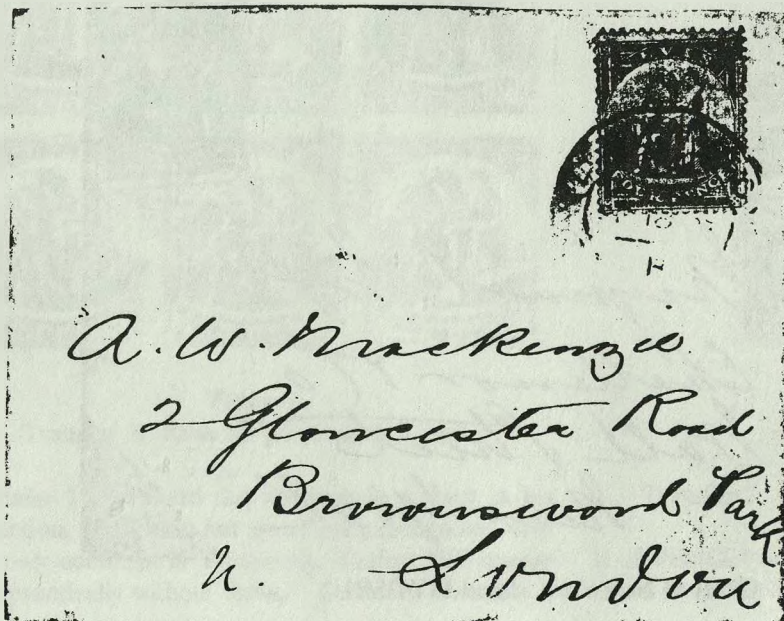 A. W. Mackenzie
2 Gloucester Road
Brownswood Park
N. London